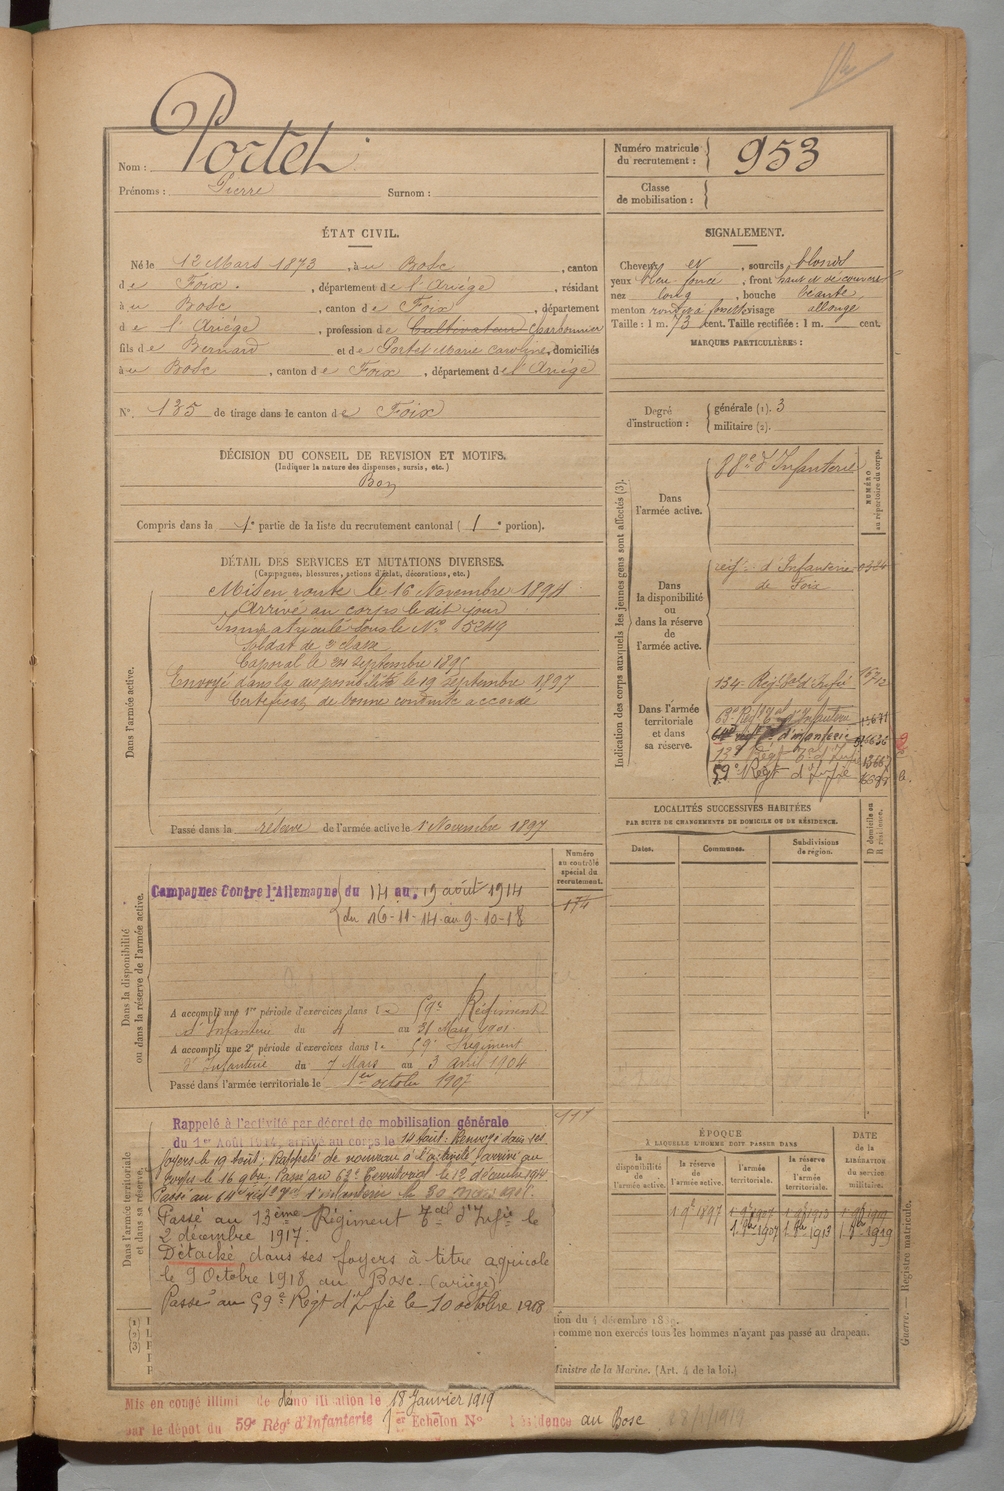 Nom : Portet
Prénoms : Pierre Surnom :
Numéro matricule du recrutement : 953
Classe de mobilisation :
ÉTAT CIVIL.
Né le 12 Mars 1873, à u Bosc, canton
d e Foix, département de l'Ariège, résidant
à u Bosc, canton de Foix, département
d e l'Ariège, profession de Cultivateur Charbonnier
fils de Bernard et de Portet Marie Caroline, domiciliés
à u Bosc, canton de Foix, département de l'Ariège
N° 135 de tirage dans le canton de Foix
SIGNALEMENT.
Cheveux et, sourcils blonds
yeux bleu foncé, front haut et découvert
nez long, bouche béante,
menton rond à fossette visage allongé
Taille : 1 m. 73 cent. Taille rectifiée : 1 m. cent.
MARQUES PARTICULIÈRES :
Degré d'instruction : générale (1). 3
militaire (2).
DÉCISION DU CONSEIL DE REVISION ET MOTIFS.
(Indiquer la nature des dispenses, sursis, etc.)
Bon
Compris dans la 1e partie de la liste du recrutement cantonal ( 1e portion).
DÉTAIL DES SERVICES ET MUTATIONS DIVERSES.
(Campagnes, blessures, actions d'éclat, décorations, etc.)
Dans l'armée active.
Mis en route le 16 Novembre 1894
Arrivé au corps le dit jour
Immatriculé sous le N° 5249
Soldat de 2e classe
Caporal le septembre 1895
Envoyé dans la disponibilité le 19 septembre 1897
Certificat de bonne conduite accordé
Passé dans la réserve de l'armée active le 1 Novembre 1897
Indication des corps auxquels les jeunes gens sont affectés (3).
NUMÉRO au répertoire du corps.
Dans l'armée active.
88e d'Infanterie
Dans la disponibilité ou dans la réserve de l'armée active.
régt d'Infanterie
de Foix
Dans l'armée territoriale et dans sa réserve.
134e Régt Infie
63e Régt d'Infanterie
64e régt d'infanterie
13e Régt Tal d'Infie
59e Régt d'Infie
LOCALITÉS SUCCESSIVES HABITÉES
PAR SUITE DE CHANGEMENTS DE DOMICILE OU DE RÉSIDENCE.
Dates. Communes. Subdivisions de région. D domicile ou R résidence.
Dans la disponibilité ou dans la réserve de l'armée active.
Numéro au contrôle spécial du recrutement.
174
Campagnes Contre l'Allemagne du 14 au 19 août 1914
du 16-11-14 au 9-10-18
A accompli une 1re période d'exercices dans le 59e Régiment
d'Infanterie du 4 au 31 Mars 1901
A accompli une 2e période d'exercices dans le 59e Régiment
d'Infanterie du 7 Mars au 3 Avril 1904
Passé dans l'armée territoriale le 1er octobre 1907
Dans l'armée territoriale et dans sa réserve
Rappelé à l'activité par décret de mobilisation générale
du 1er Août 1914, arrivé au corps le 14 août. Renvoyé dans ses
foyers le 19 août; Rappelé de nouveau à l'activité, arrivé au
corps le 16 9bre. Passé au 63e Territorial le 1er décembre 1914
Passé au 64e
Passé au 13ème Régiment Tal d'Infie le
2 décembre 1917.
Détaché dans ses foyers à titre agricole
le 9 Octobre 1918 au Bosc (ariège)
Passé au 59e Régt d'Infie le 10 octobre 1918
ÉPOQUE
À LAQUELLE L'HOMME DOIT PASSER DANS
DATE DE LA LIBÉRATION du service militaire.
la disponibilité de l'armée active. la réserve de l'armée active. l'armée territoriale. la réserve de l'armée territoriale.
1 9e 1897 1 9e 1907 1 9e 1913
1. 9re 1907 1. 9re 1913 1 1919
(1)
(2)
(3)
tion du 4 décembre 18
comme non exercés tous les hommes n'ayant pas passé au drapeau.
Ministre de la Marine. (Art. 4 de la loi.)
Guerre. — Registre matricule.
Mis en congé illimi de démo ilisation le 18 Janvier 1919
par le dépot du 59e Rég d'Infanterie 1er Echelon N° résidence au Bosc